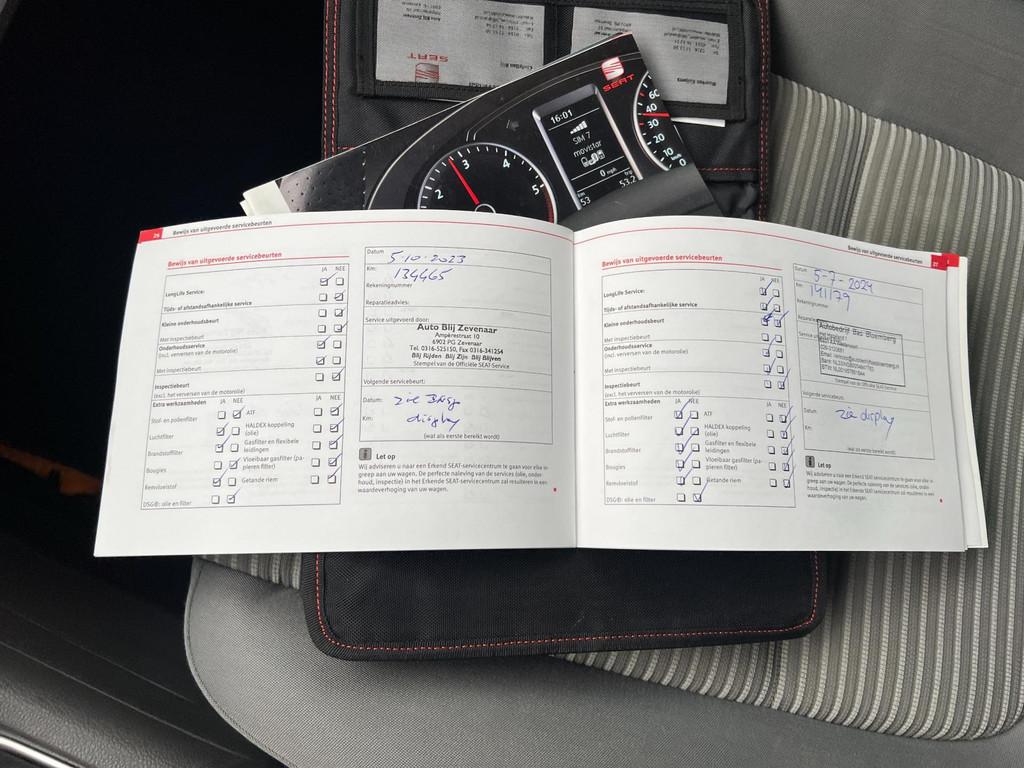 SEAT
SEAT
16:01
SIM 7
movistar
0 mph
53.2
53
2
3
4
5
60
40
30
20
10
0
26 Bewijs van uitgevoerde servicebeurten
Bewijs van uitgevoerde servicebeurten
JA NEE
LongLife Service:
Tijds- of afstandsafhankelijke service
Kleine onderhoudsbeurt
Met inspectiebeurt
Onderhoudsservice
(incl. verversen van de motorolie)
Met inspectiebeurt
Inspectiebeurt
(excl. het verversen van de motorolie)
Extra werkzaamheden JA NEE JA NEE
Stof- en pollenfilter
ATF
Luchtfilter
HALDEX koppeling
(olie)
Brandstoffilter
Gasfilter en flexibele
leidingen
Bougies
Vloeibaar gasfilter (pa-
pieren filter)
Remvloeistof
Getande riem
DSG®: olie en filter
Datum 5-10-2023
Km: 134465
Rekeningnummer
Reparatieadvies:
Service uitgevoerd door:
Auto Blij Zevenaar
Ampèrestraat 10
6902 PG Zevenaar
Tel. 0316-525150, Fax 0316-341254
Blij Rijden Blij Zijn Blij Blijven
Stempel van de Officiële SEAT-Service
Volgende servicebeurt:
Datum: zie
Km: display
(wat als eerste bereikt wordt)
Let op
Wij adviseren u naar een Erkend SEAT-servicecentrum te gaan voor elke in-
greep aan uw wagen. De perfecte naleving van de services (olie, onder-
houd, inspectie) in het Erkende SEAT-servicecentrum zal resulteren in een
waardeverhoging van uw wagen.
Bewijs van uitgevoerde servicebeurten 27
Bewijs van uitgevoerde servicebeurten
JA NEE
LongLife Service:
Tijds- of afstandsafhankelijke service
Kleine onderhoudsbeurt
Met inspectiebeurt
Onderhoudsservice
(incl. verversen van de motorolie)
Met inspectiebeurt
Inspectiebeurt
(excl. het verversen van de motorolie)
Extra werkzaamheden JA NEE JA NEE
Stof- en pollenfilter
ATF
Luchtfilter
HALDEX koppeling
(olie)
Brandstoffilter
Gasfilter en flexibele
leidingen
Bougies
Vloeibaar gasfilter (pa-
pieren filter)
Remvloeistof
Getande riem
DSG®: olie en filter
Datum: 5-7-2024
Km: 141179
Rekeningnummer:
Autobedrijf Bas Bloemberg
Stempel van de Officiële SEAT-Service
Volgende servicebeurt:
Datum: zie display
Km:
(wat als eerste bereikt wordt)
Let op
Wij adviseren u naar een Erkend SEAT-servicecentrum te gaan voor elke in-
greep aan uw wagen. De perfecte naleving van de services (olie, onder-
houd, inspectie) in het Erkende SEAT-servicecentrum zal resulteren in een
waardeverhoging van uw wagen.